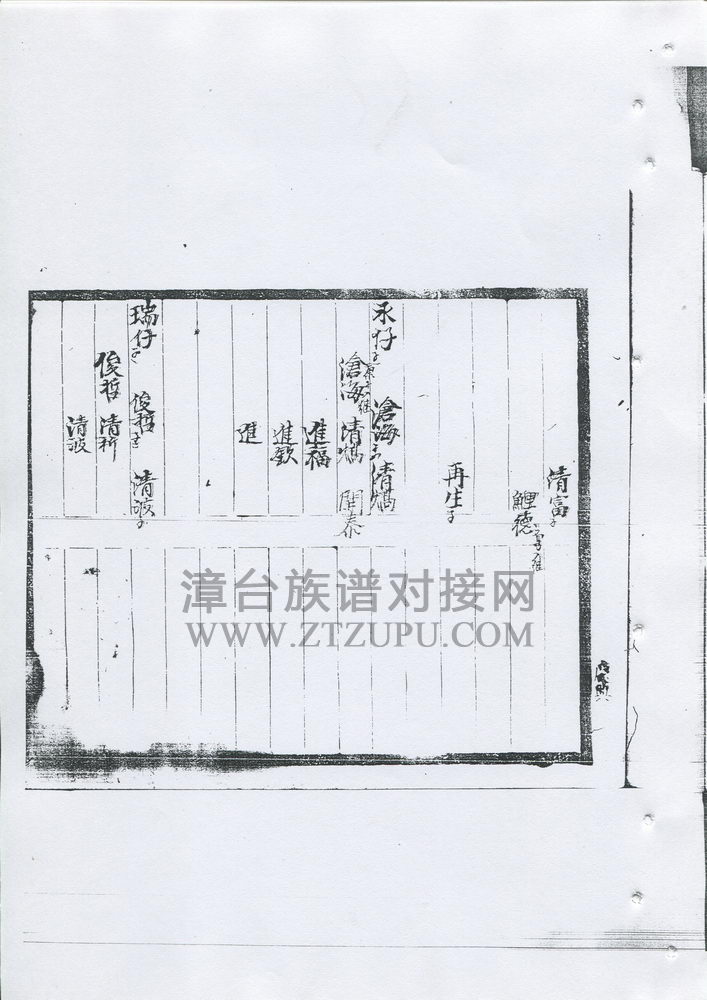 清富子
鯉德
再生子
丞仔子 滄海子 清㷄
滄海 清 開泰
進福
進欽
進
瑞仔子 俊哲子 清波子
俊哲 清祈
清波
漳台族谱对接网
WWW.ZTZUPU.COM